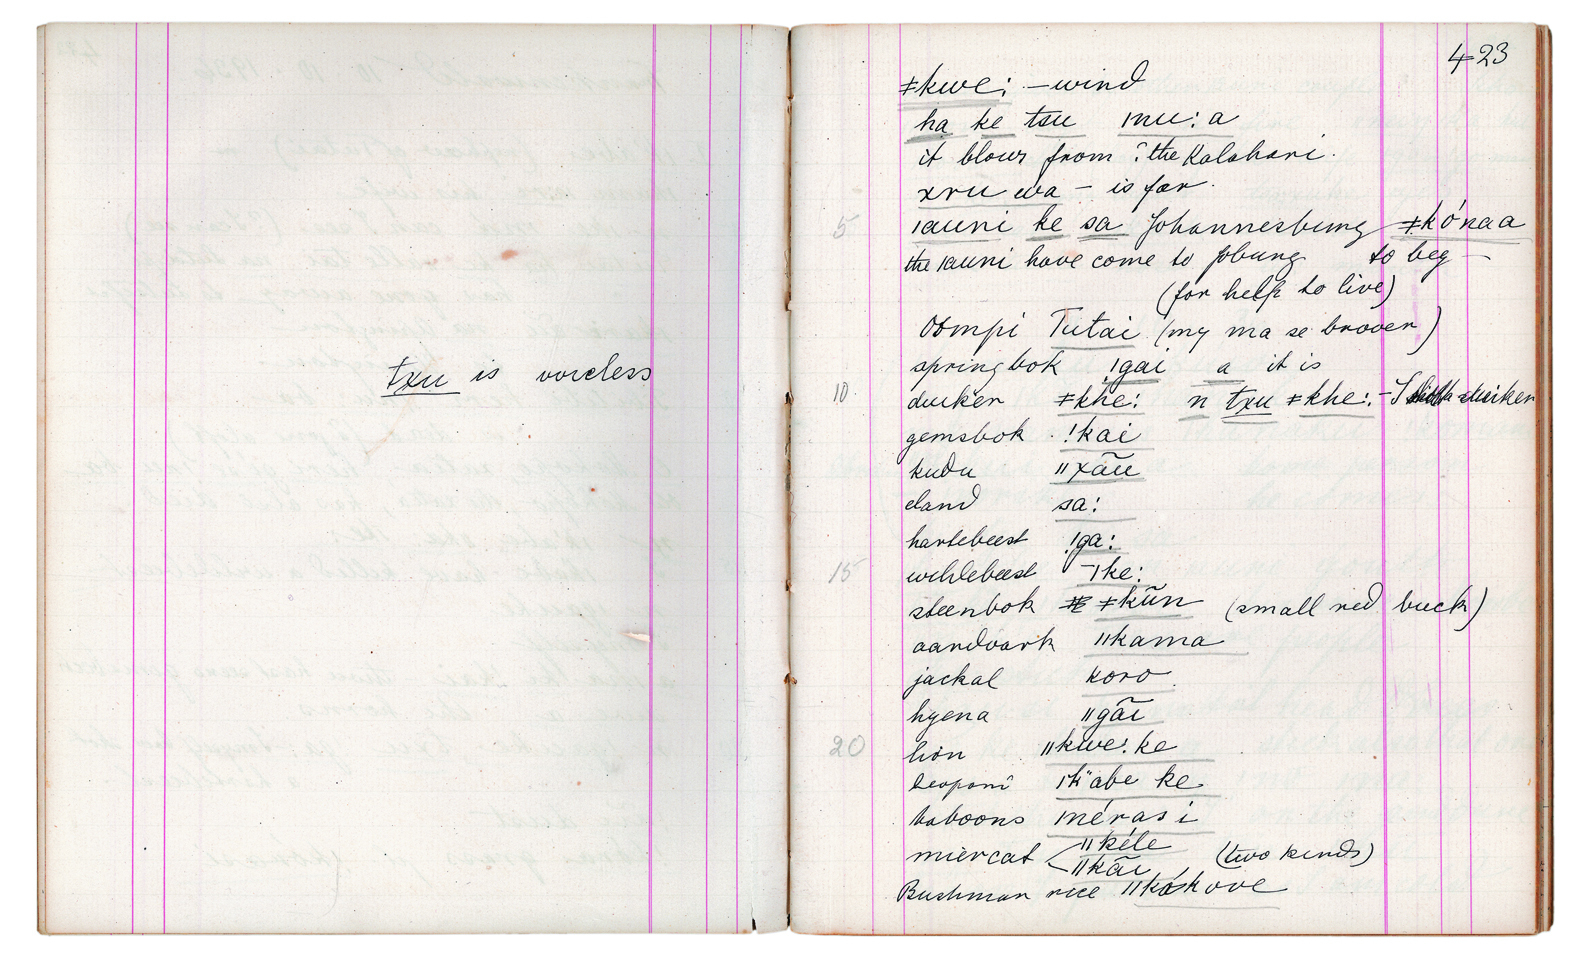 txu is voiceless
423
ǂkwe: – wind
ha ke tsu ǀnu: a
it blows from ? the Kalahari.
xru wa – is far.
5 ǀauni ke sa Johannesburg ǂkónaa
the ǀauni have come to Joburg to beg –
(for help to live)
Oompi Tutai (my ma se broer)
springbok !gai a it is
10 duiker ǂkhe: n txu ǂkhe: – I duiker
gemsbok !kai
kudu ǁxãũ
eland sa:
hartebeest !ga:
15 wildebeest ǀke:
steenbok ǂkũn (small red buck)
aardvark ǁkama
jackal koro
hyena ǁgãĩ
20 lion ǁkwe: ke
leopard ǀk"abe ke
baboons mérasi
miercat ǁkéle
ǁkãĩ (two kinds)
Bushman rice ǁkákove